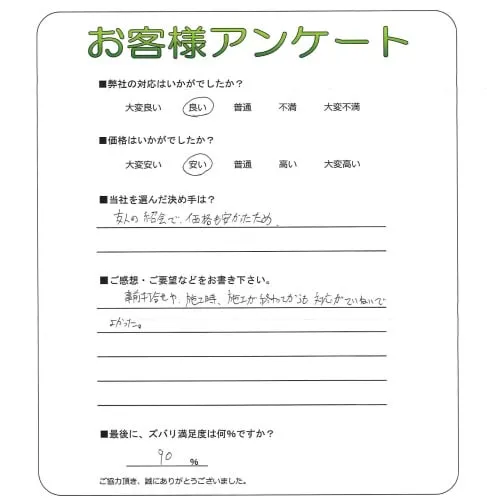 お客様アンケート
■弊社の対応はいかがでしたか?
大変良い 良い 普通 不満 大変不満
■価格はいかがでしたか?
大変安い 安い 普通 高い 大変高い
■当社を選んだ決め手は?
友人の紹介で、価格も安かたため、
■ご感想・ご要望などをお書き下さい。
事前打合せや、施工時、施工が終わってからも対応がていねいで
よかった。
■最後に、ズバリ満足度は何%ですか?
90 %
ご協力頂き、誠にありがとうございました。